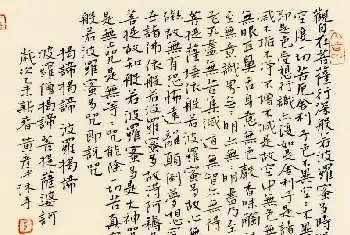 觀自在菩薩行深般若波羅蜜多時
空度一切苦厄舍利子色不異空空
即是色受想行識亦復如是舍利子是諸
滅不垢不淨不增不減是故空中無色
無眼耳鼻舌身意無色聲香味觸
至無意識界無無明亦無無明盡乃至
盡無苦集滅道無智亦無得
菩提薩埵依般若波羅蜜多故心無
礙故無有恐怖遠離顛倒夢想
諸佛依般若波羅蜜多故得阿耨
菩提故知般若波羅蜜多是大神咒
是無上咒是無等等咒能除一切苦真
般若波羅蜜多咒即說咒
揭諦揭諦 波羅揭諦
波羅僧揭諦菩提薩婆訶
歲次